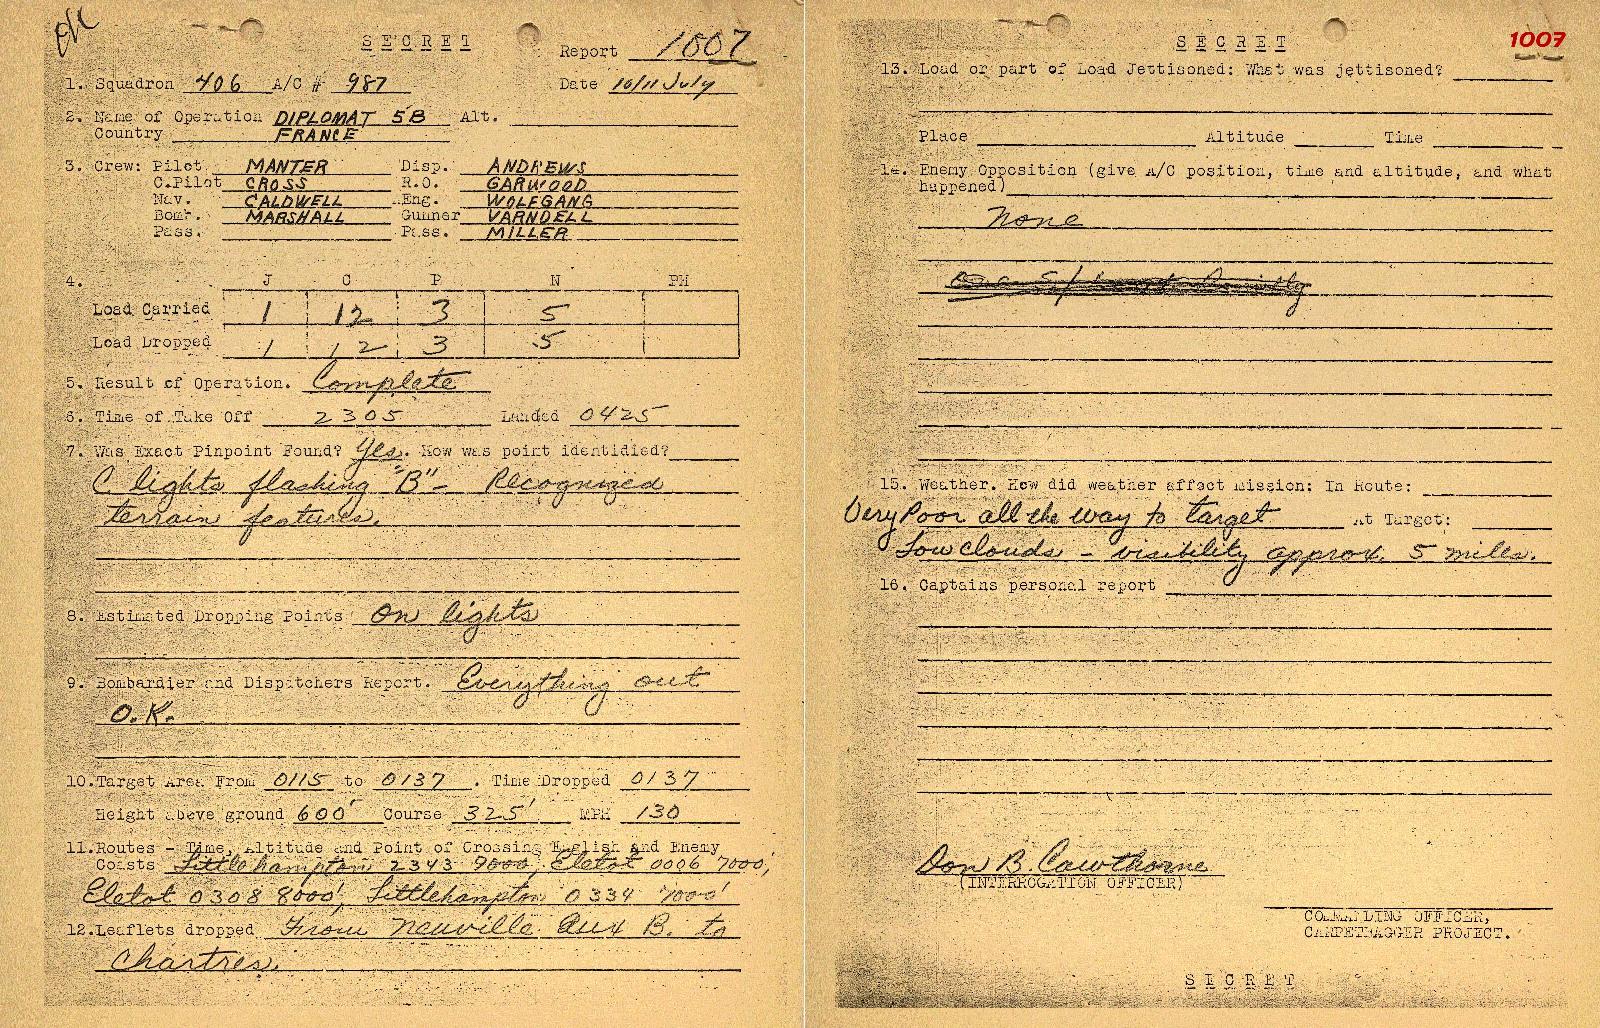 OK
SECRET
Report 1007
1. Squadron 406 A/C # 987 Date 10/11 July
2. Name of Operation DIPLOMAT 5B Alt.
Country FRANCE
3. Crew: Pilot MANTER Disp. ANDREWS
C.Pilot CROSS R.O. GARWOOD
Nav. CALDWELL Eng. WOLFGANG
Bomb. MARSHALL Gunner VARNDELL
Pass. Pass. MILLER
4. J C P N PH
Load Carried 1 12 3 5
Load Dropped 1 12 3 5
5. Result of Operation. Complete
6. Time of Take Off 2305 Landed 0425
7. Was Exact Pinpoint Found? Yes. How was point identidied?
C lights flashing "B" - Recognized
terrain features.
8. Estimated Dropping Points On lights
9. Bombardier and Dispatchers Report. Everything out
O.K.
10. Target Area From 0115 to 0137. Time Dropped 0137
Height above ground 600' Course 325' MPH 130
11. Routes - Time, Altitude and Point of Crossing English and Enemy
Coasts Littlehampton 2343 9000', Eletot 0006 7000',
Eletot 0308 8000', Littlehampton 0334 7000'
12. Leaflets dropped From Neuville Aux B. to
Chartres.
SECRET
1007
13. Load or part of Load Jettisoned: What was jettisoned?
Place Altitude Time
14. Enemy Opposition (give A/C position, time and altitude, and what
happened)
None
15. Weather. How did weather affect mission: In Route:
Very Poor all the way to target At Target:
Low clouds - visibility approx. 5 miles.
16. Captains personal report
Don B. Cawthorne
(INTERROGATION OFFICER)
COMMANDING OFFICER,
CARPETBAGGER PROJECT.
SECRET